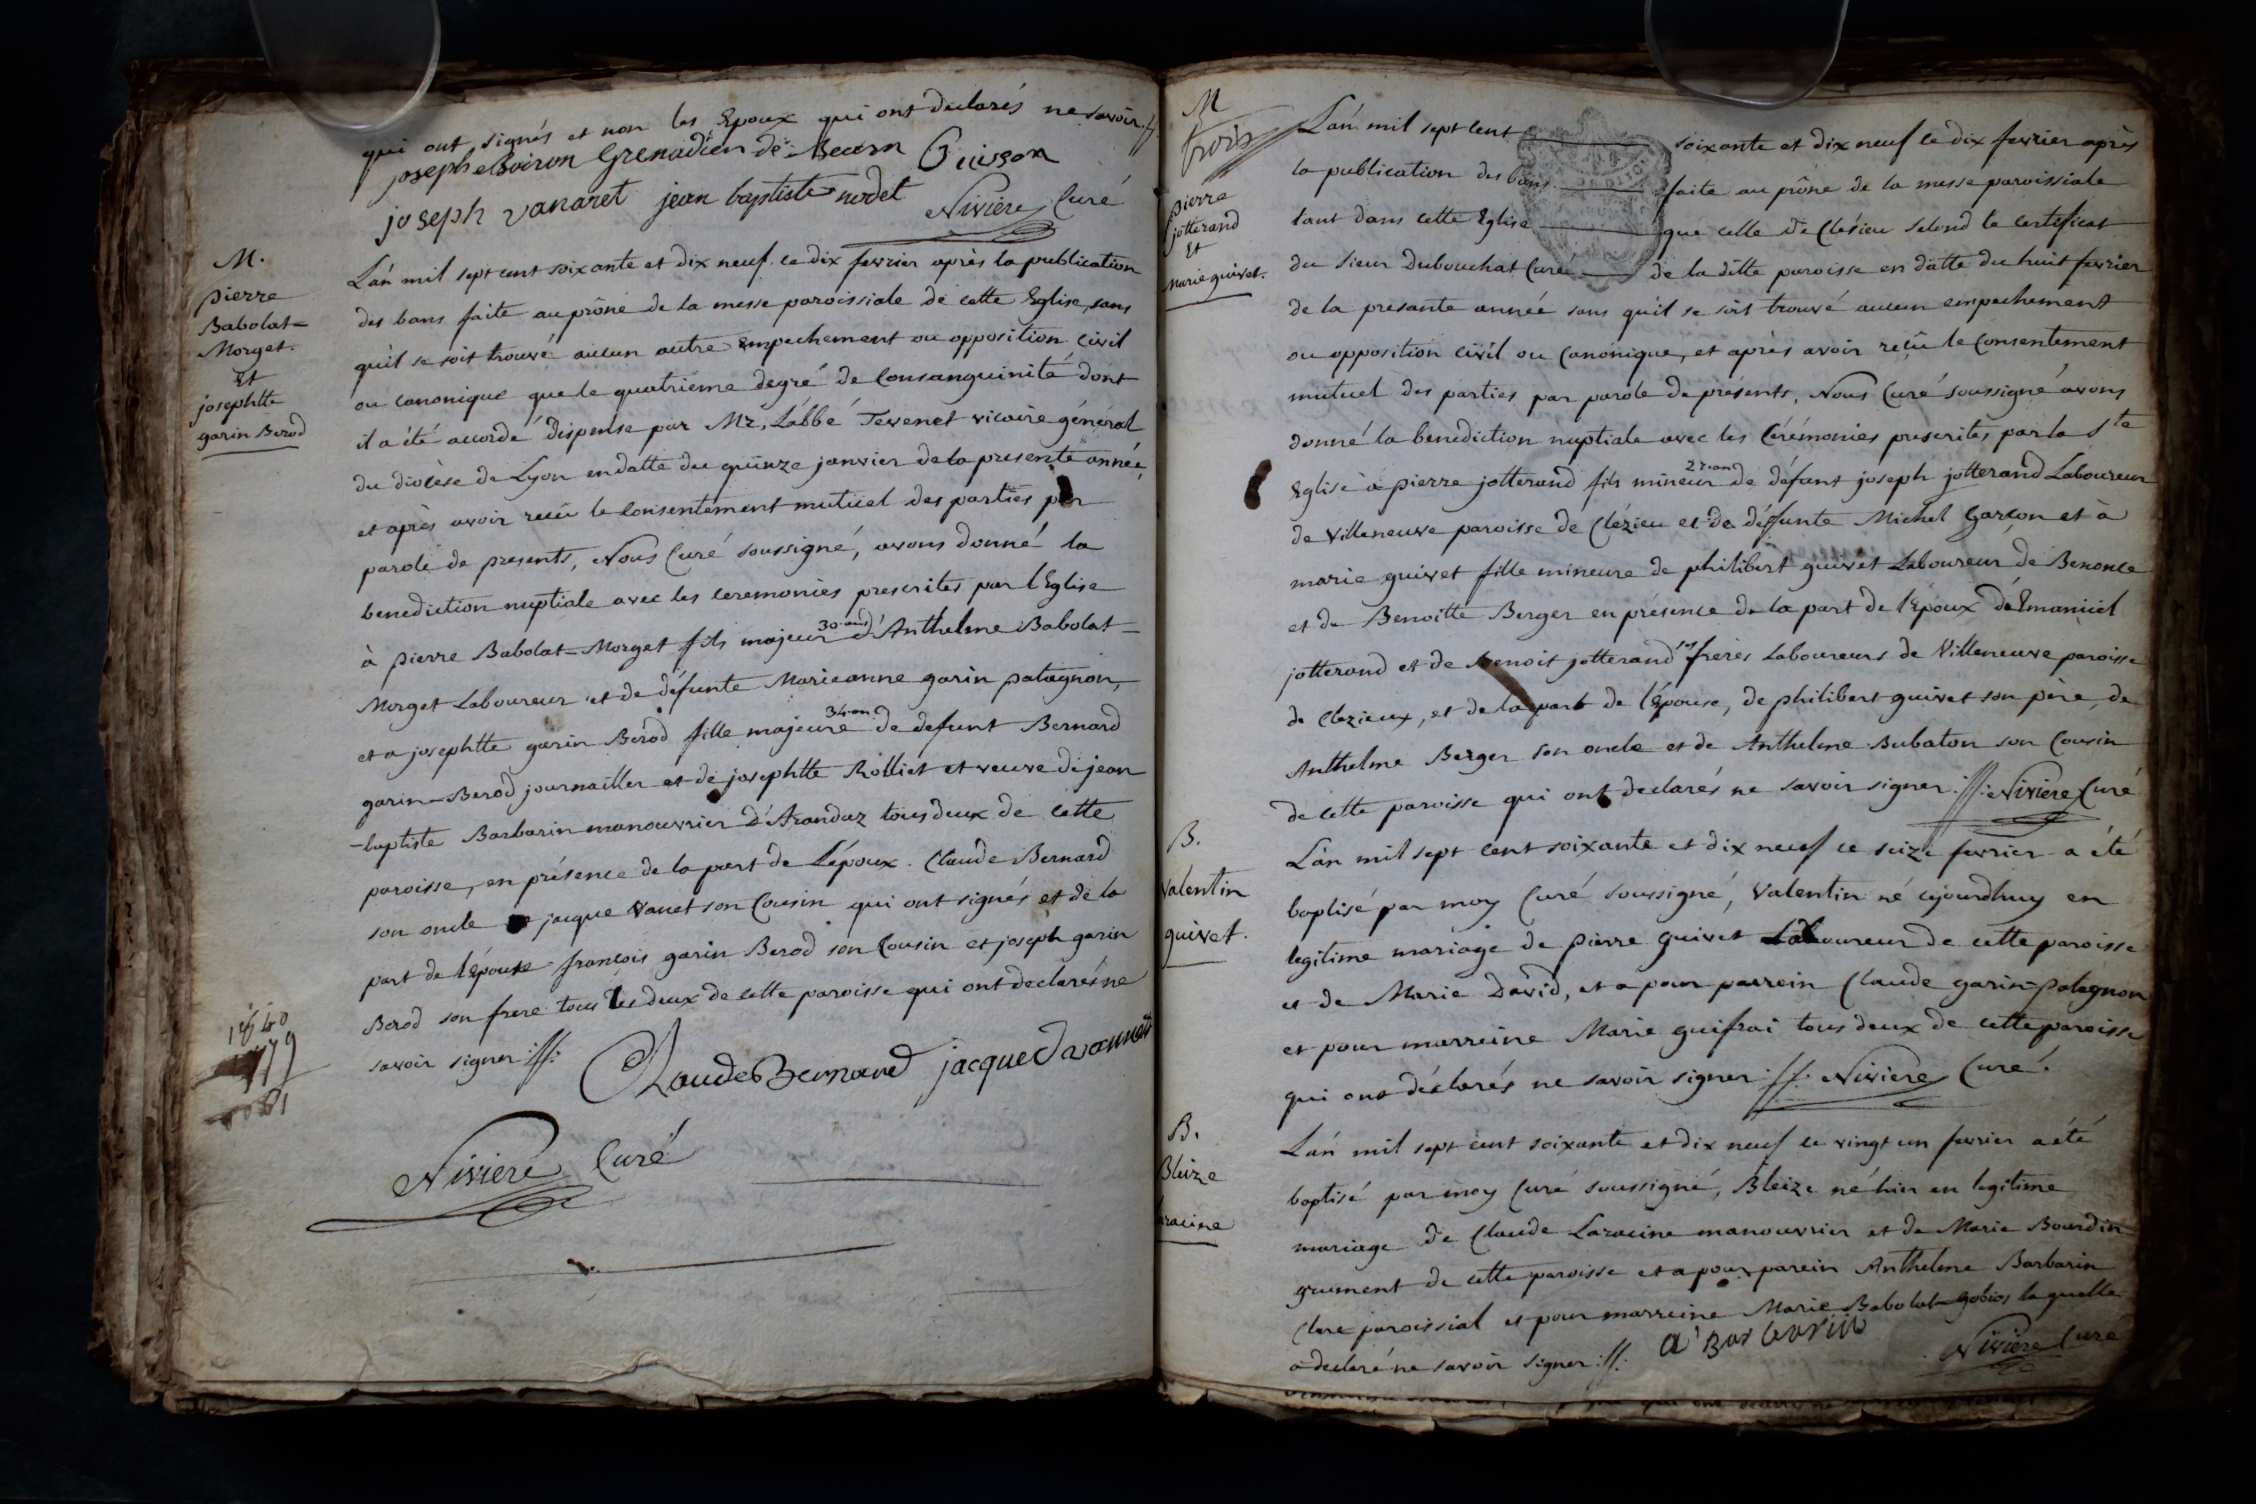 qui ont signés et non les Epoux qui ont declarés ne savoir
joseph Boiron Grenadien de Bearn Guivson
joseph vanaret jean baptiste nodet Niviere Curé
M.
pierre
Babolat=
Morget.
Et
josephtte
garin Berod
L'an mil sept cent soixante et dix neuf le dix fevrier après la publication
des bans faite au prône de la messe paroissiale de cette Eglise, sans
qu'il se soit trouvé aucun autre empechement ou opposition civil
ou canonique que le quatrieme degré de Consanguinité dont
il a été accordé dispense par Mr, L'abbé Tevenet vicaire général
du diocèse de Lyon en datte du quinze janvier de la presente année,
et après avoir reçû le consentement mutuel des parties par
parole de presents, Nous Curé soussigné, avons donné la
benediction nuptiale avec les ceremonies prescrites par l'Eglise
à pierre Babolat=Morget fils majeur 30 ans d'Anthelme Babolat=
Morget Laboureur et de défunte Marieanne garin patagnon,
et a josephtte garin Berod fille majeure 34 an de defunt Bernard
garin=Berod journaillier et de josephtte Rolliet et veuve de jean
=baptiste Barbarin manouvrier D'Arandaz tous deux de cette
paroisse, en présence de la part de l'époux. Claude Bernard
son oncle jacque vanet son Cousin qui ont signés et de la
part de l'épouse françois garin Berod son Cousin et joseph garin
Berod son frere tous les deux de cette paroisse qui ont declarés ne
savoir signer
Claude Bernard jacque davannet
Niviere Curé
M
trois
pierre
jotterand
Et
marie guivet.
L'an mil sept cent soixante et dix neuf le dix fevrier après
la publication des bans faite au prône de la messe paroissiale
tant dans cette Eglise que celle de Clézieu selond le certificat
du sieur Dubouchat Curé de la ditte paroisse en datte du huit fevrier
de la presante année sans qu'il se soit trouvé aucun empechement
ou opposition civil ou Canonique, et après avoir reçû le Consentement
mutuel des parties par parole de présents, Nous Curé soussigné avons
donné la benediction nuptiale avec les Cérémonies prescrites par la Ste
Eglise à pierre jotterand fils mineur 27 an de défunt joseph jotterand Laboureur
de Villeneuve paroisse de Clézieu et de deffunte Michel Garçon et à
marie guivet fille mineure de philibert guivet Laboureur de Benonce
et de Benoitte Berger en présence de la part de l'Epoux d'Emanüel
jotterand et de Benoit jotterand ses frères Laboureurs de Villeneuve paroisse
de Clezieux, et de la part de l'Epouse, de philibert guivet son père, de
Anthelme Berger son oncle et de Anthelme Bubaton son Cousin
de cette paroisse qui ont declarés ne savoir signer Niviere Curé
B.
Valentin
guivet.
L'an mil sept cent soixante et dix neuf le seize fevrier a été
baptisé par moy Curé soussigné, Valentin né ajourdhuy en
legitime mariage de pierre guivet Laboureur de cette paroisse
et de Marie David, et a pour parrein Claude garin=patagnon
et pour marreine Marie guifrai tous deux de cette paroisse
qui ont déclarés ne savoir signer Niviere Curé.
B.
Bleize
Laracine
L'an mil sept cent soixante et dix neuf le vingt un fevrier a été
baptisé par moy Curé soussigné, Bleize né hier en legitime
mariage de Claude Laracine manouvrier et de Marie Bourdin
grument de cette paroisse et a pour parein Anthelme Barbarin
Clerc paroissial et pour marreine Marie Babolat=gobios laquelle
a declaré ne savoir signer a Barbarin Niviere Curé